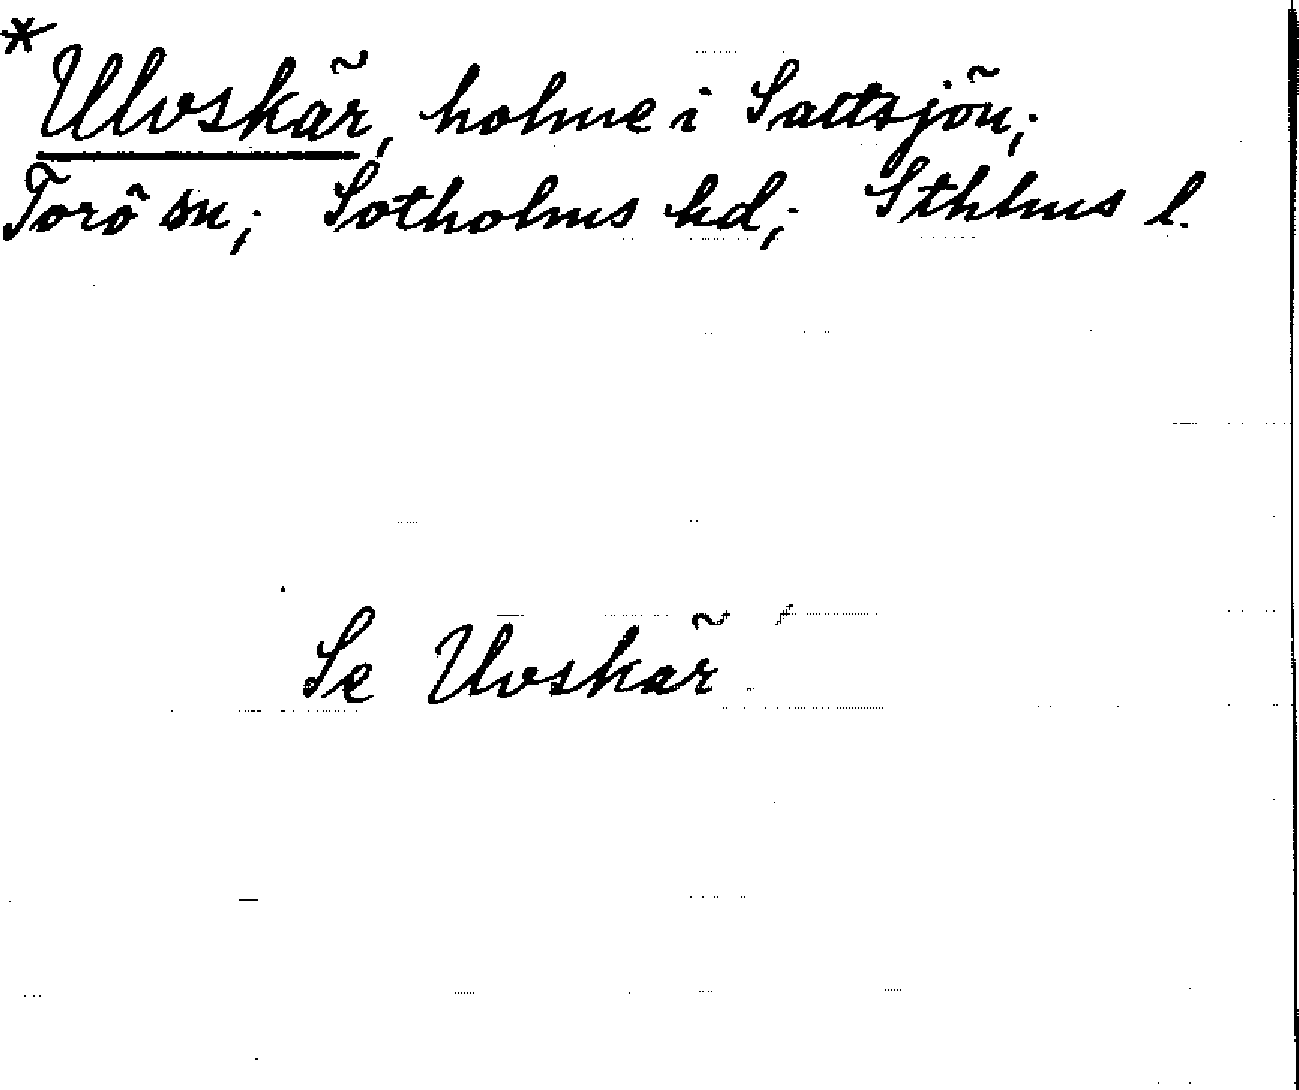 * Ulvskär, holme i Saltsjön;
Torö sn; Sotholms hd; Sthlms l.
Se Uvskär